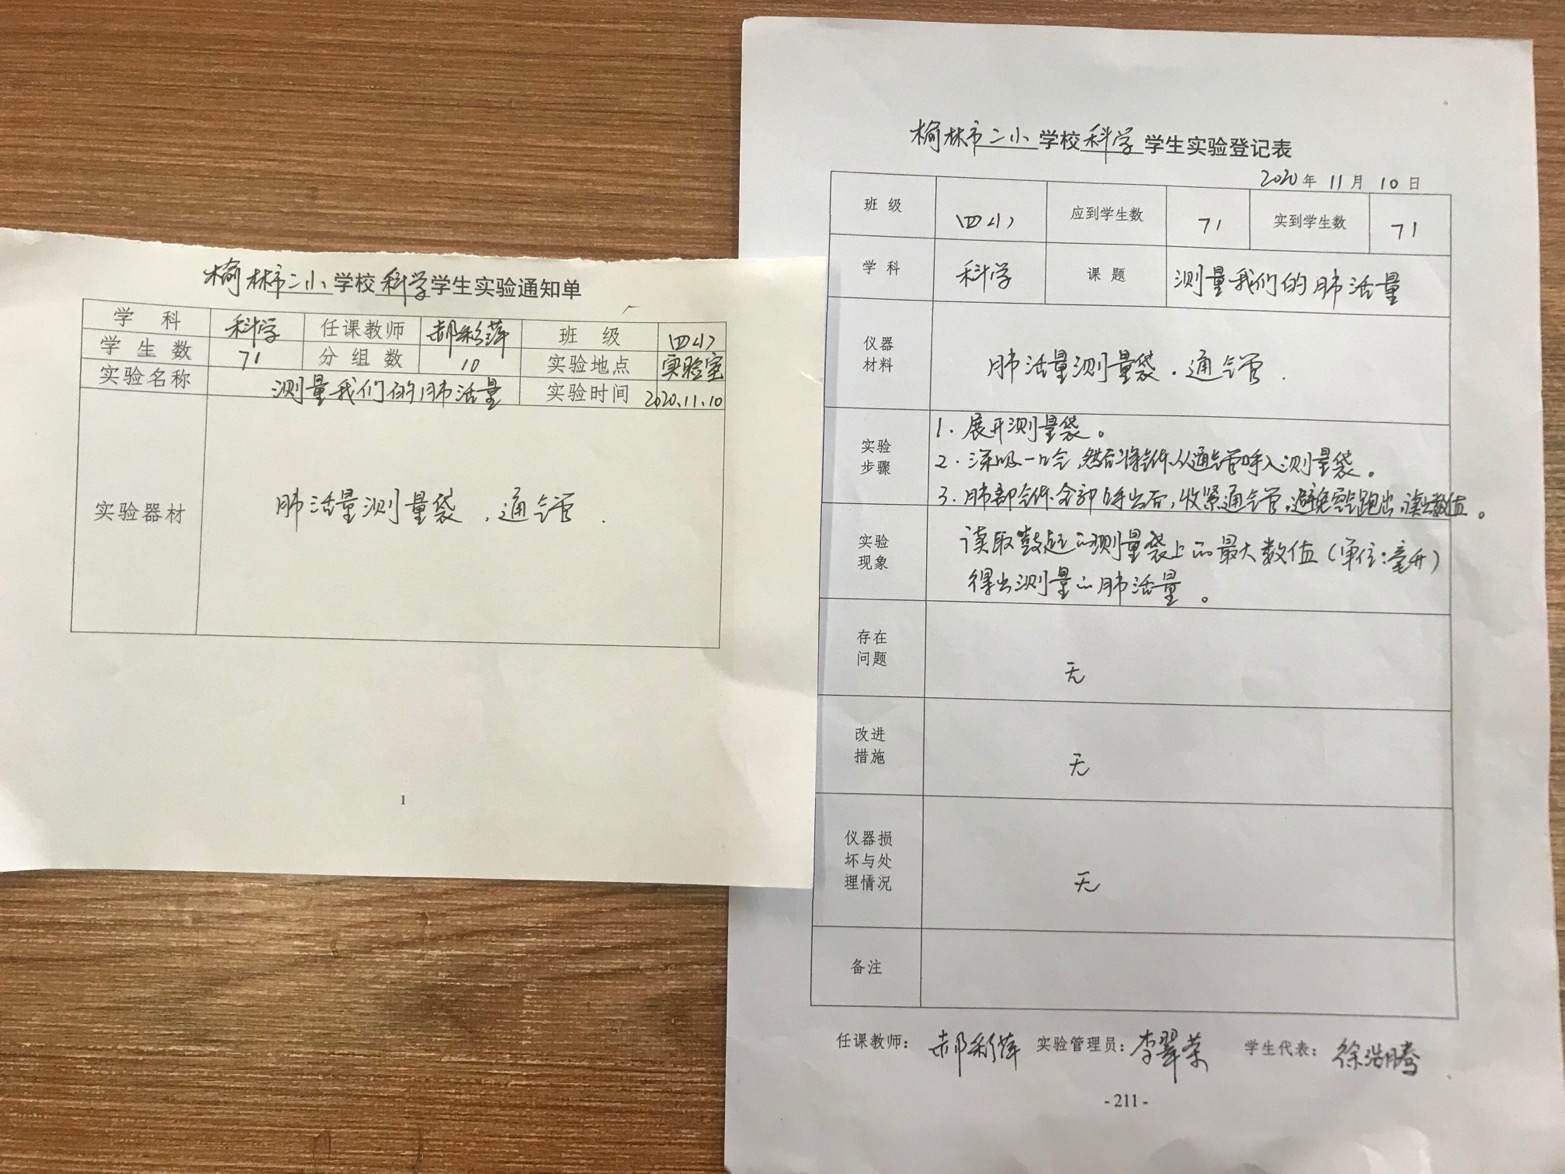 榆林市二小学校科学学生实验通知单
学科 科学 任课教师 郝彩萍 班级 四(1)
学生数 71 分组数 10 实验地点 实验室
实验名称 测量我们的肺活量 实验时间 2020.11.10
实验器材 肺活量测量袋、通气管.
1
榆林市二小学校科学学生实验登记表
2020年11月10日
班级 四(1) 应到学生数 71 实到学生数 71
学科 科学 课题 测量我们的肺活量
仪器
材料
肺活量测量袋、通气管.
实验
步骤
1.展开测量袋。
2.深吸一口气,然后将气体从通气管呼入测量袋。
3.肺部气体全部呼出后,收紧通气管,避免空气跑出,读出数值。
实验
现象
读取鼓起的测量袋上的最大数值(单位:毫升)
得出测量的肺活量。
存在
问题
无
改进
措施
无
仪器损
坏与处
理情况
无
备注
任课教师: 郝彩萍 实验管理员: 李翠荣 学生代表: 徐浩腾
- 211 -